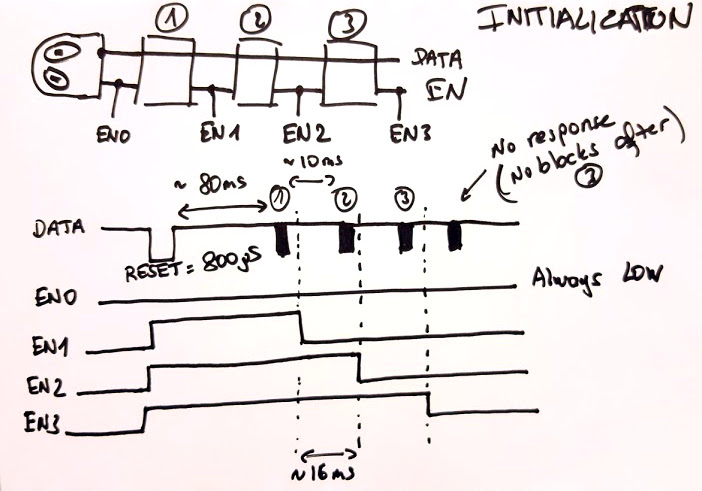 INITIALIZATION
① ② ③
DATA
EN
EN0 EN1 EN2 EN3
~10ms
No response
(No blocks after)
③
~80ms
① ② ③
DATA
RESET = 800µS
EN0 Always LOW
EN1
EN2
EN3
~16ms